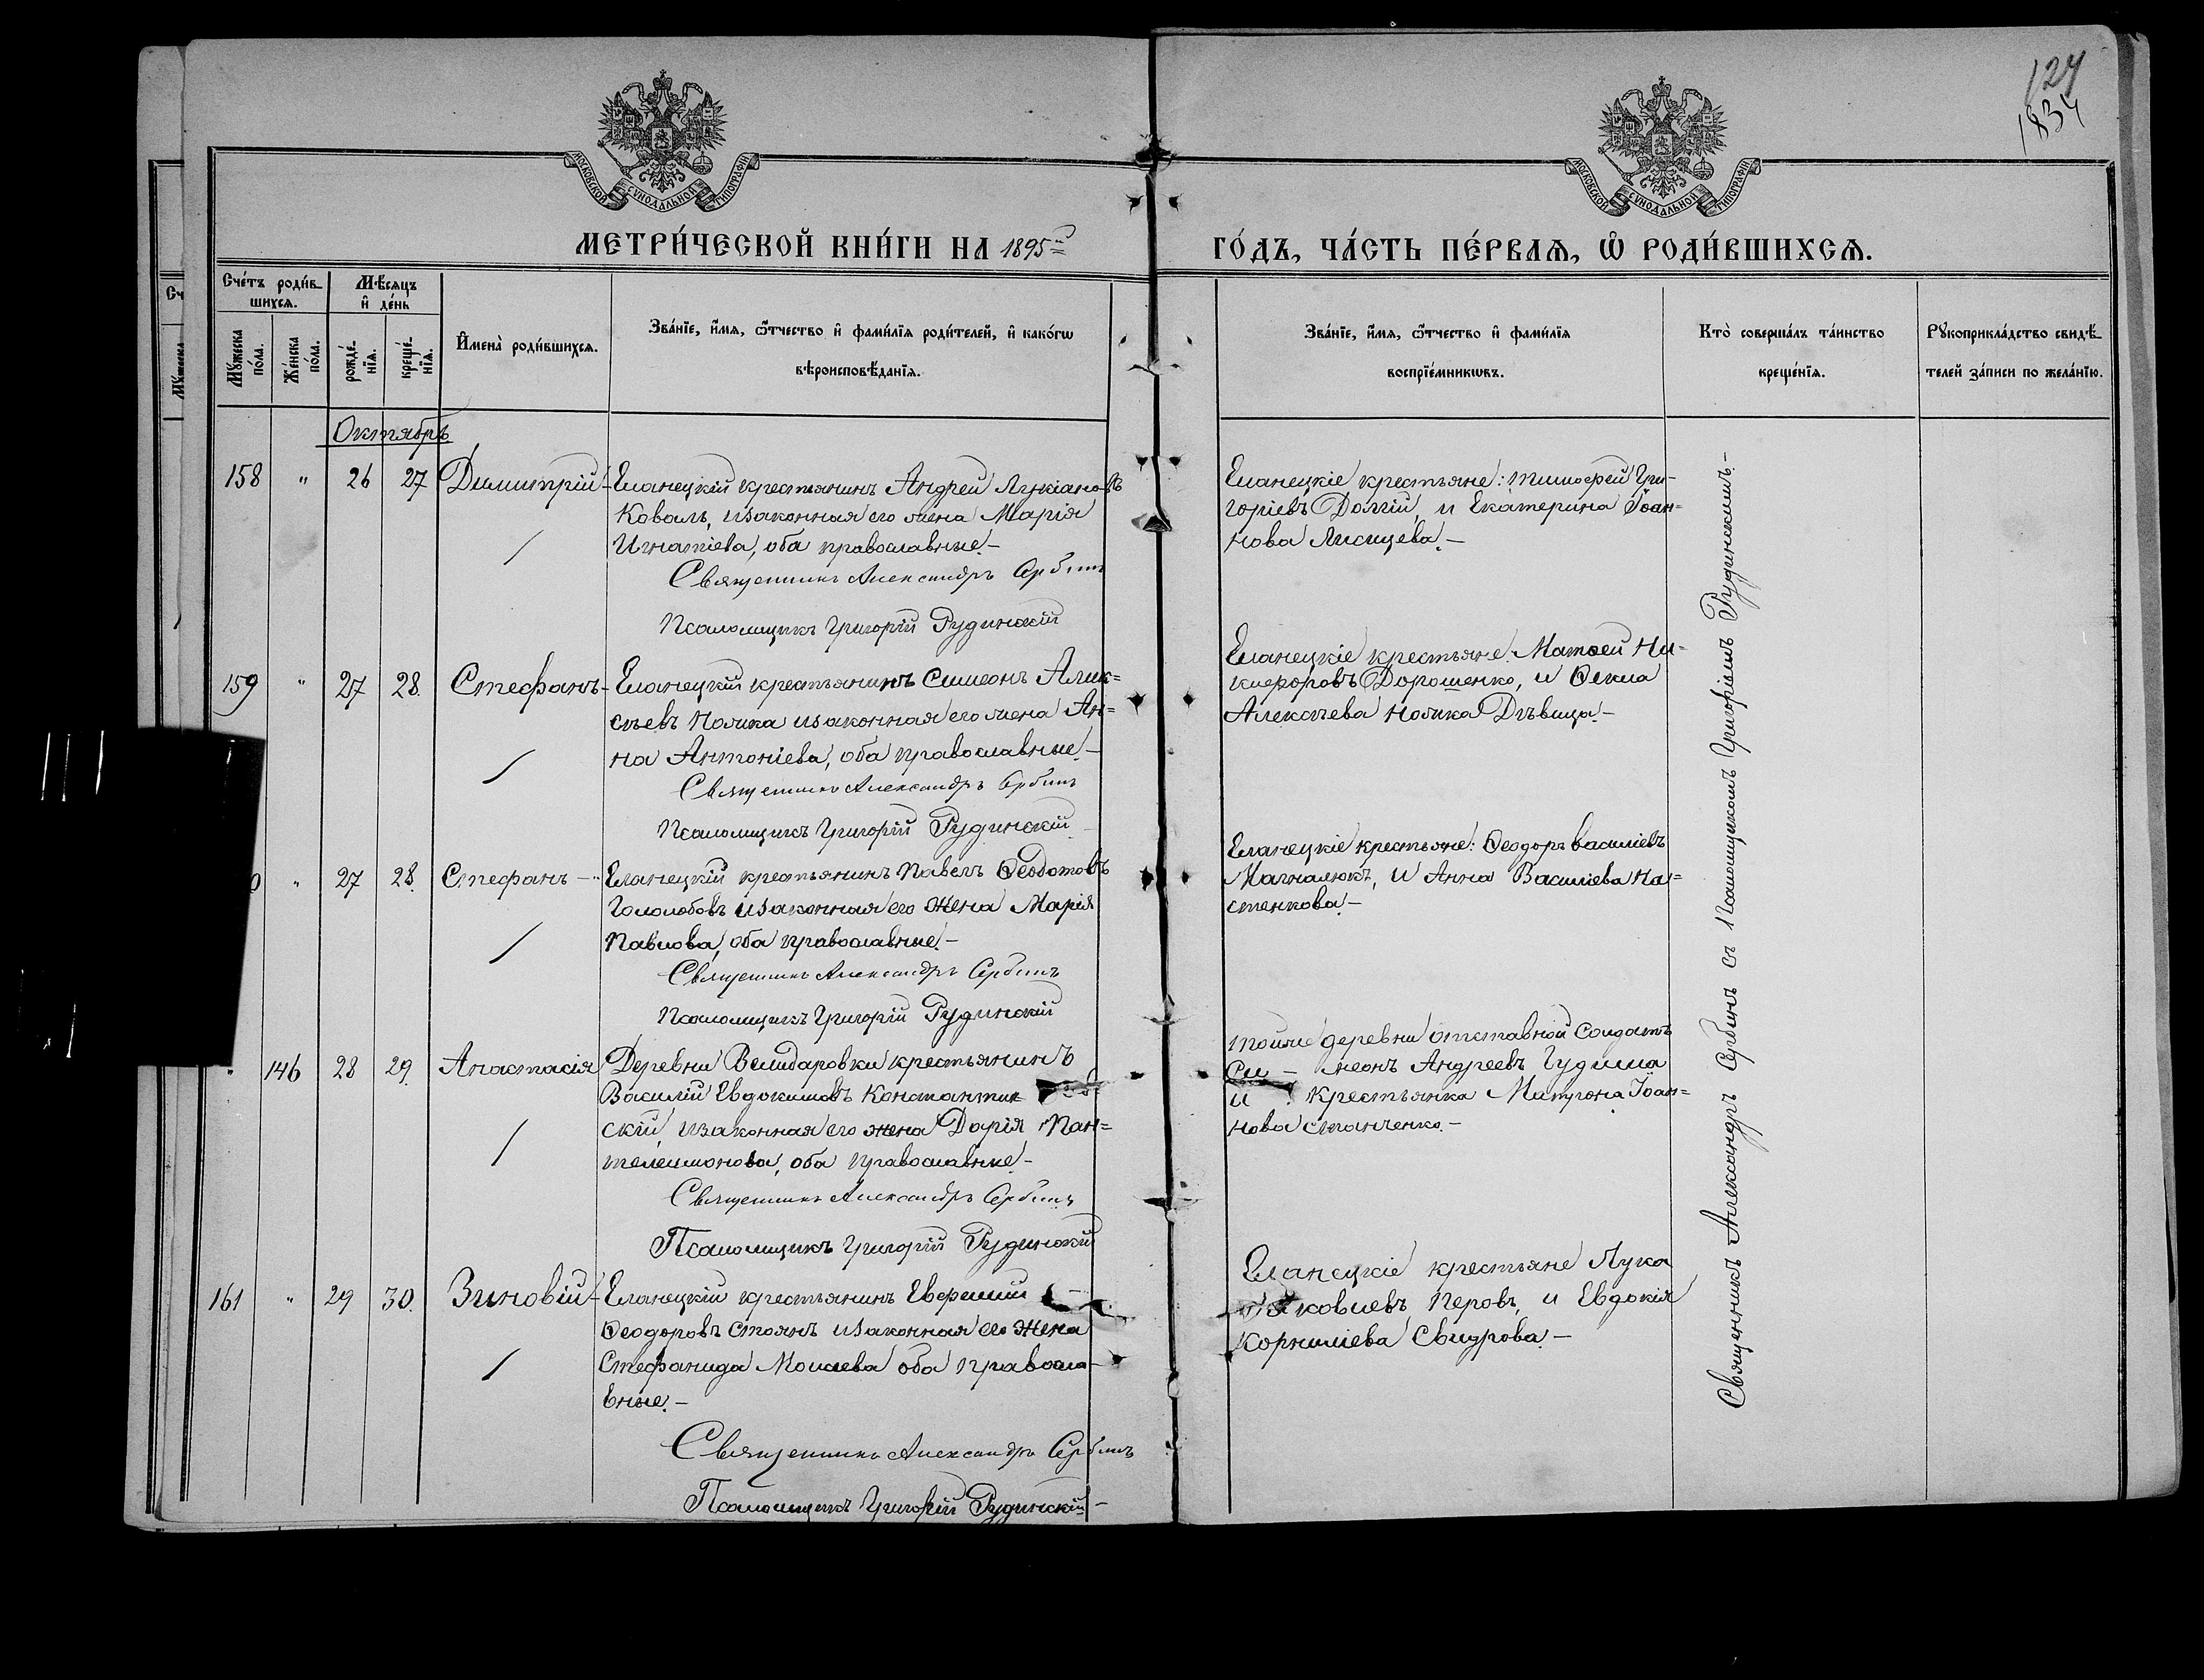 127
1834
МОСКОВСКОЙ СУНОДАЛЬНОЙ ТИПОГРАФІИ
МОСКОВСКОЙ СУНОДАЛЬНОЙ ТИПОГРАФІИ
МЕТРИ́ЧЕСКОЙ КНИ́ГИ НА 1895й
ГО́ДЪ, ЧА́СТЬ ПЕ́РВАѦ, Ѡ҆ РОДИ́ВШИХСѦ.
Сче́тъ роди́в-
шихсѧ.
Мѣ́сѧцъ
и҆ де́нь
Мꙋ́жеска
по́ла.
Же́нска
по́ла.
рожде́-
нїѧ.
креще́-
нїѧ.
И҆мена̀ роди́вшихсѧ.
Зва́нїе, и҆́мѧ, ѻ҆́тчество и҆ фами́лїѧ роди́телей, и҆ како́гѡ
вѣроисповѣ́данїѧ.
Зва́нїе, и҆́мѧ, ѻ҆́тчество и҆ фами́лїѧ
воспрїе́мникѡвъ.
Кто̀ соверша́лъ та́инство
креще́нїѧ.
Рꙋкоприкла́дство свидѣ́-
телей за́писи по жела́нїю.
Октябрь
158 " 26 27 Димитрій - Еланецкій крестьянинъ Андрей Лукіановъ
Коваль, изаконная его жена Марія
Игнатіева, оба православные. -
Священникъ Александръ Сербинъ
Псаломщикъ Григорій Рудинскій
Еланецкіе крестьяне: Тимофей Гри-
горіевъ Долгій, и Екатерина Іоан=
нова Лисицева. -
159 " 27 28. Стефанъ - Еланецкій крестьянинъ Симеонъ Алек=
сѣевъ Нолика изаконная его жена Ан=
на Антоніева, оба православные. -
Священникъ Александръ Сербинъ
Псаломщикъ Григорій Рудинскій
Еланецкіе крестьяне: Матѳей Ни=
кифоровъ Дорошенко, и Ѳекла
Алексѣева Нолика Дѣвица. -
0 " 27 28. Стефанъ - Еланецкій крестьянинъ Павелъ Ѳеодотовъ
Гололобовъ изаконная его жена Марія
Павлова, оба православные. -
Священникъ Александръ Сербинъ
Псаломщикъ Григорій Рудинскій
Еланецкіе крестьяне: Ѳеодоръ Василіевъ
Магналюкъ, и Анна Василіева На=
стенкова. -
" 146 28 29. Анастасія Деревни Велидаровки крестьянинъ
Василій Евдокимовъ Константинов-
скій, изаконная его жена Дарія Пан=
телеимонова, оба православные. -
Священникъ Александръ Сербинъ
Псаломщикъ Григорій Рудинскій
тойже деревни отставной Солдатъ
Си - меонъ Андреевъ Гудыма
и крестьянка Матрона Іоан=
нова Степанченко. -
161 " 29 30. Зиновій - Еланецкій крестьянинъ Евфимій -
Ѳеодоровъ Стоянъ изаконная его жена
Стефанида Моисеева оба правосла-
вные. -
Священникъ Александръ Сербинъ
Псаломщикъ Григорій Рудинскій -
Еланецкіе крестьяне Лука
Яковлевъ Перовъ, и Евдокія
Корниліева Свидрова. -
Священникъ Александръ Сербинъ съ Псаломщикомъ Григоріемъ Рудинскимъ. -